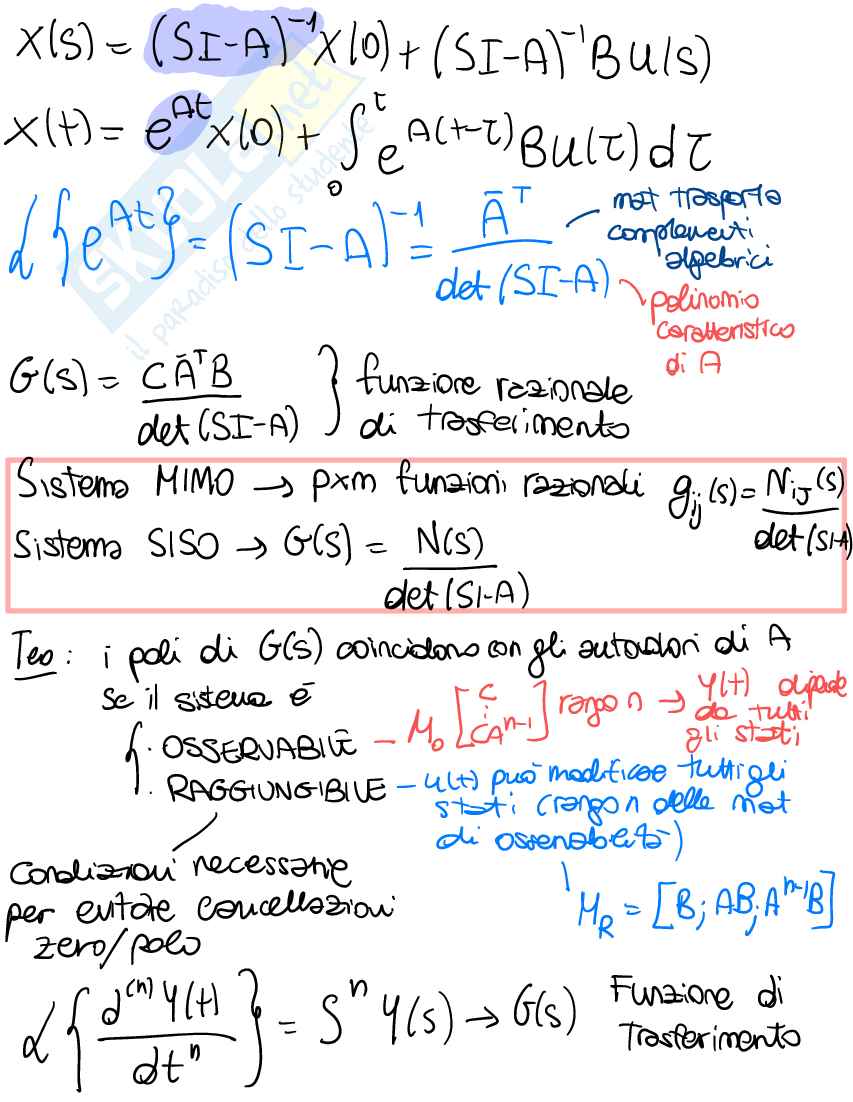 X(s) = (SI-A)⁻¹X(0) + (SI-A)⁻¹BU(s)
X(t) = e^{At}X(0) + ∫₀^τ e^{A(t-τ)}BU(τ)dτ
ℒ{e^{At}} = (SI-A)⁻¹ = Āᵀ / det(SI-A)
mat trasposta
complementi
algebrici
polinomio
caratteristico
di A
G(s) = CĀᵀB / det(SI-A) } funzione razionale
di trasferimento
Sistema MIMO → p×m funzioni razionali g_{ij}(s) = N_{ij}(s) / det(SI-A)
Sistema SISO → G(s) = N(s) / det(SI-A)
Teo: i poli di G(s) coincidono con gli autovalori di A
se il sistema è
· OSSERVABILE – M_o [C ⋮ CA^{n-1}] rango n → Y(t) dipende
da tutti
gli stati
· RAGGIUNGIBILE – u(t) può modificare tutti gli
stati (rango n della mat
di osservabilità)
M_R = [B; AB; A^{n-1}B]
Condizioni necessarie
per evitare cancellazioni
zero/polo
ℒ{d^{(n)}Y(t) / dtⁿ} = Sⁿ Y(s) → G(s) Funzione di
Trasferimento
SKUOLA.net
il paradiso dello studente